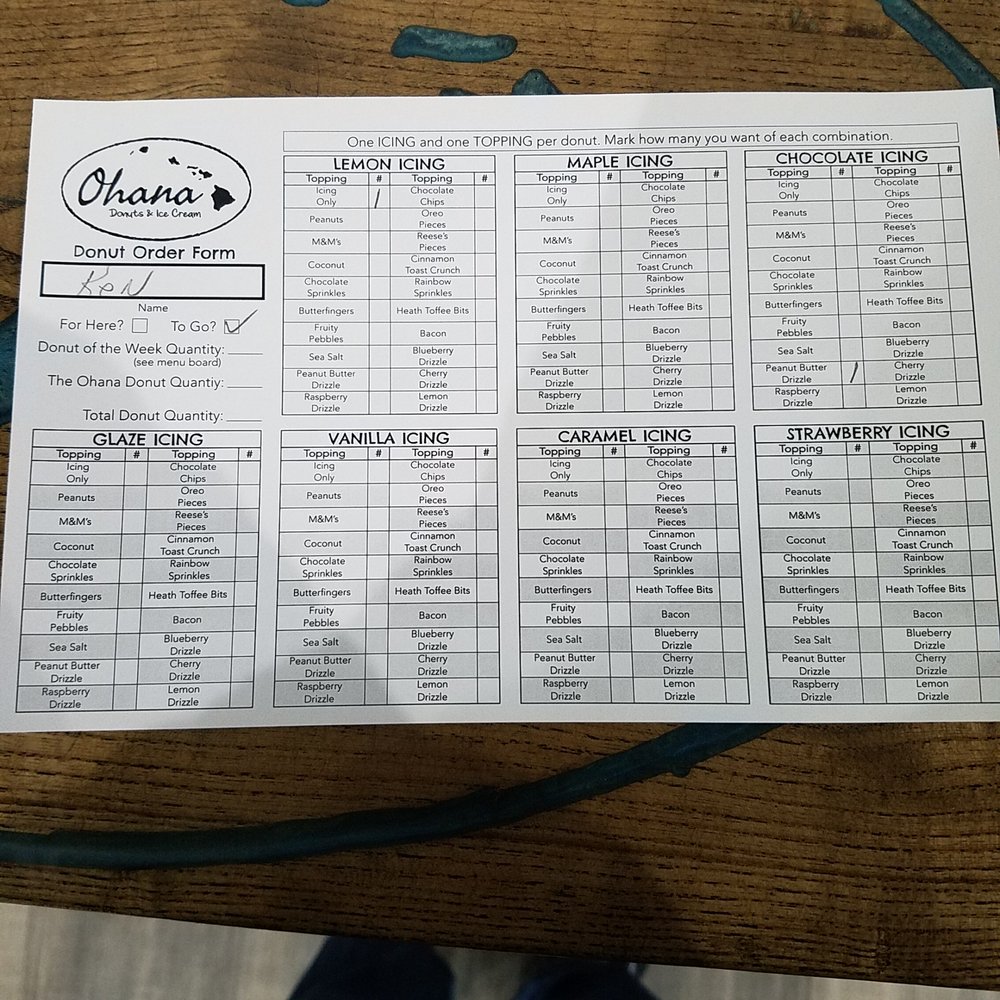 Ohana
Donuts & Ice Cream
Donut Order Form
Ken
Name
For Here? To Go? ✓
Donut of the Week Quantity: ____
(see menu board)
The Ohana Donut Quantiy: ____
Total Donut Quantity: ____
One ICING and one TOPPING per donut. Mark how many you want of each combination.
LEMON ICING
Topping # Topping #
Icing Only / Chocolate Chips
Peanuts Oreo Pieces
M&M's Reese's Pieces
Coconut Cinnamon Toast Crunch
Chocolate Sprinkles Rainbow Sprinkles
Butterfingers Heath Toffee Bits
Fruity Pebbles Bacon
Sea Salt Blueberry Drizzle
Peanut Butter Drizzle Cherry Drizzle
Raspberry Drizzle Lemon Drizzle
MAPLE ICING
Topping # Topping #
Icing Only Chocolate Chips
Peanuts Oreo Pieces
M&M's Reese's Pieces
Coconut Cinnamon Toast Crunch
Chocolate Sprinkles Rainbow Sprinkles
Butterfingers Heath Toffee Bits
Fruity Pebbles Bacon
Sea Salt Blueberry Drizzle
Peanut Butter Drizzle Cherry Drizzle
Raspberry Drizzle Lemon Drizzle
CHOCOLATE ICING
Topping # Topping #
Icing Only Chocolate Chips
Peanuts Oreo Pieces
M&M's Reese's Pieces
Coconut Cinnamon Toast Crunch
Chocolate Sprinkles Rainbow Sprinkles
Butterfingers Heath Toffee Bits
Fruity Pebbles Bacon
Sea Salt Blueberry Drizzle
Peanut Butter Drizzle / Cherry Drizzle
Raspberry Drizzle Lemon Drizzle
GLAZE ICING
Topping # Topping #
Icing Only Chocolate Chips
Peanuts Oreo Pieces
M&M's Reese's Pieces
Coconut Cinnamon Toast Crunch
Chocolate Sprinkles Rainbow Sprinkles
Butterfingers Heath Toffee Bits
Fruity Pebbles Bacon
Sea Salt Blueberry Drizzle
Peanut Butter Drizzle Cherry Drizzle
Raspberry Drizzle Lemon Drizzle
VANILLA ICING
Topping # Topping #
Icing Only Chocolate Chips
Peanuts Oreo Pieces
M&M's Reese's Pieces
Coconut Cinnamon Toast Crunch
Chocolate Sprinkles Rainbow Sprinkles
Butterfingers Heath Toffee Bits
Fruity Pebbles Bacon
Sea Salt Blueberry Drizzle
Peanut Butter Drizzle Cherry Drizzle
Raspberry Drizzle Lemon Drizzle
CARAMEL ICING
Topping # Topping #
Icing Only Chocolate Chips
Peanuts Oreo Pieces
M&M's Reese's Pieces
Coconut Cinnamon Toast Crunch
Chocolate Sprinkles Rainbow Sprinkles
Butterfingers Heath Toffee Bits
Fruity Pebbles Bacon
Sea Salt Blueberry Drizzle
Peanut Butter Drizzle Cherry Drizzle
Raspberry Drizzle Lemon Drizzle
STRAWBERRY ICING
Topping # Topping #
Icing Only Chocolate Chips
Peanuts Oreo Pieces
M&M's Reese's Pieces
Coconut Cinnamon Toast Crunch
Chocolate Sprinkles Rainbow Sprinkles
Butterfingers Heath Toffee Bits
Fruity Pebbles Bacon
Sea Salt Blueberry Drizzle
Peanut Butter Drizzle Cherry Drizzle
Raspberry Drizzle Lemon Drizzle